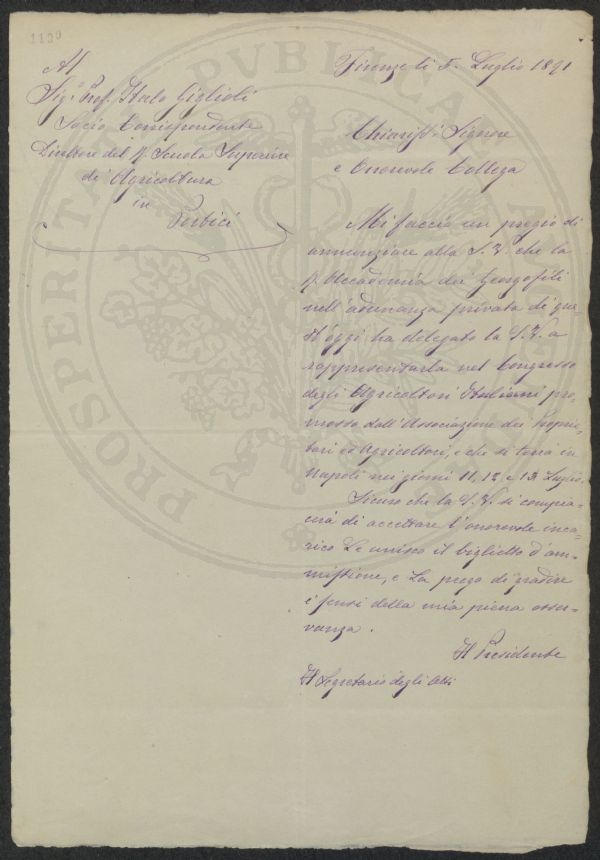 1139
Al
Sig.r Prof. Italo Giglioli
Socio Corrispondente
Direttore del R. Scuola Superiore
di Agricoltura
in
Portici
Firenze li 5. Luglio 1891
Chiariss. Signore
e Onorevole Collega
Mi faccio un pregio di
annunziare alla S. V. che la
R. Accademia dei Georgofili
nell'adunanza privata di que-
st'oggi ha delegato la S. V. a
rappresentarla nel Congresso
degli Agricoltori Italiani pro-
mosso dall'Associazione dei Proprie-
tari ed Agricoltori, e che si terrà in
Napoli nei giorni 11, 12 e 13 Luglio.
Sicuro che la S. V. si compia-
cerà di accettare l'onorevole inca-
rico Le unisco il biglietto d'am-
missione, e La prego di gradire
i sensi della mia piena osser-
vanza.
Il Presidente
Il Segretario degli Atti
PROSPERITATI PUBLICAE AU